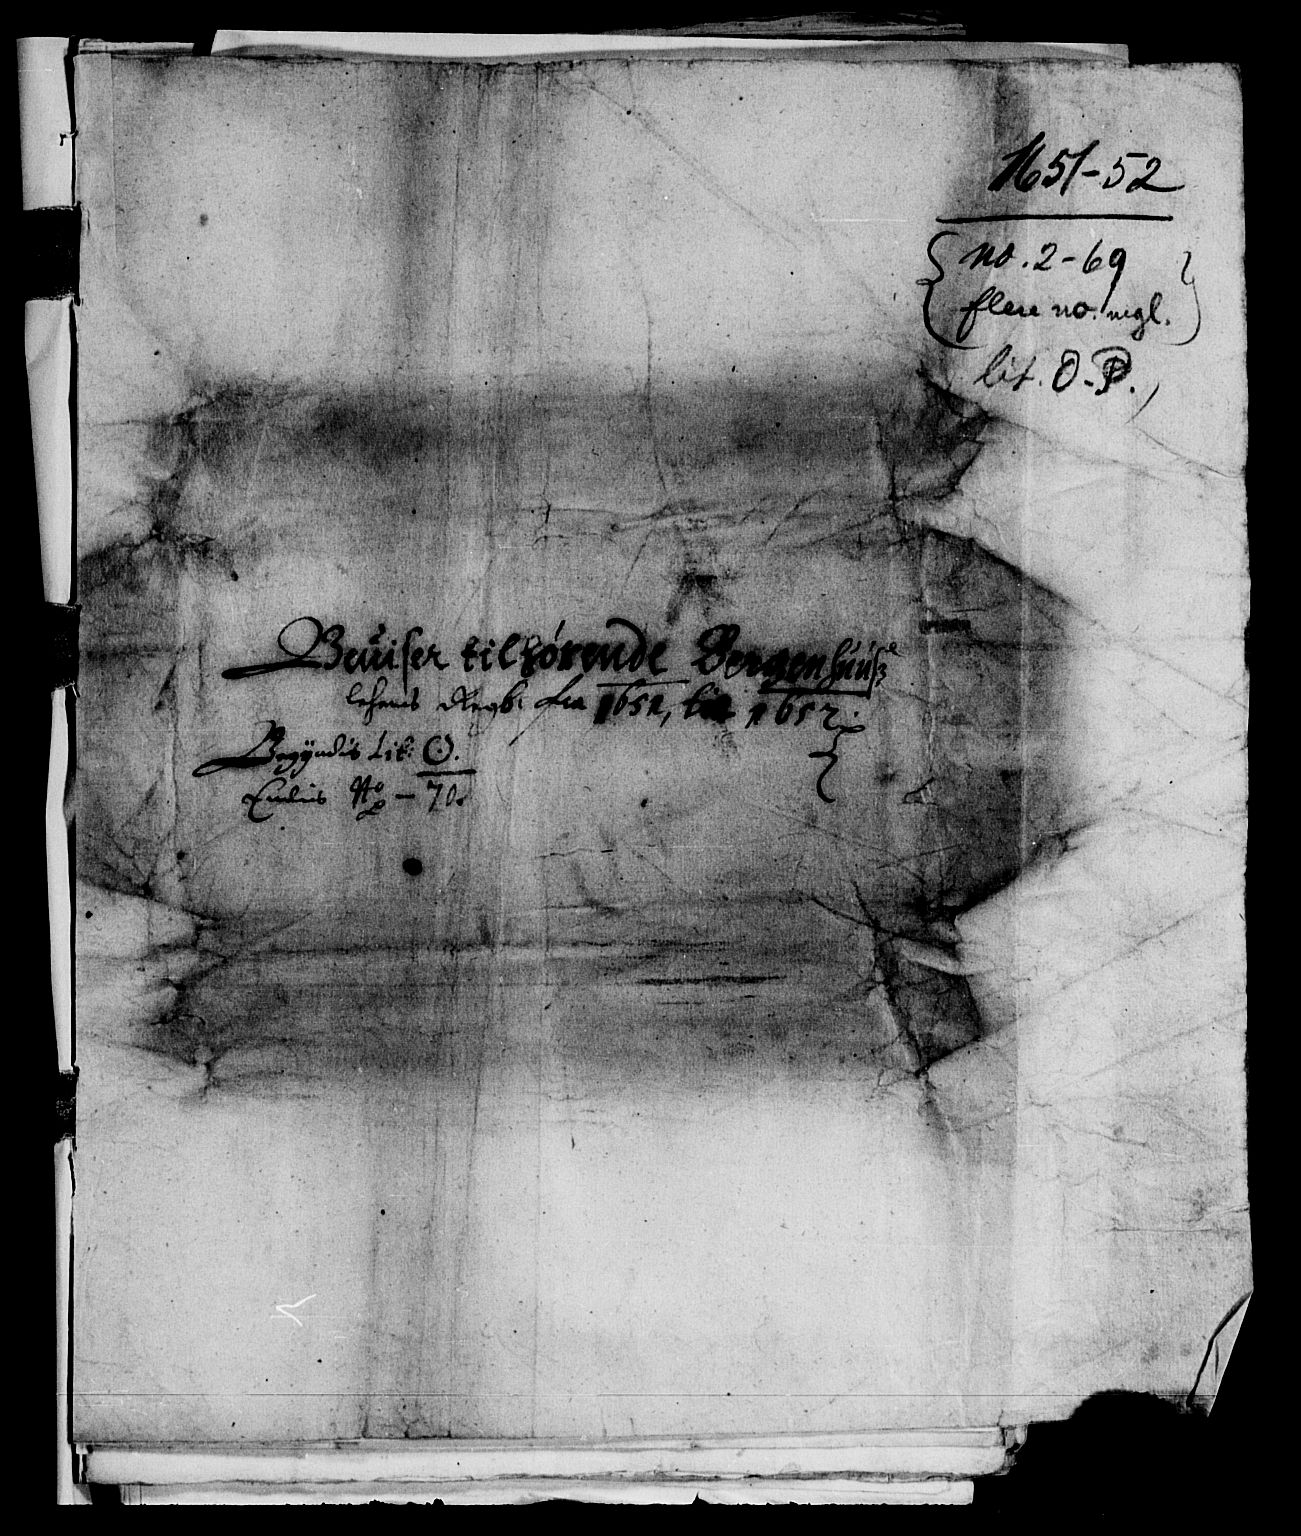 1651-52
no. 2-69
flere no. mgl.
lit. O-P.
Beuiser tilhørende Bergenhuus
lehens Regb: fra 1651, til 1652
Begÿndis Lit: O.
Endis No - 70.